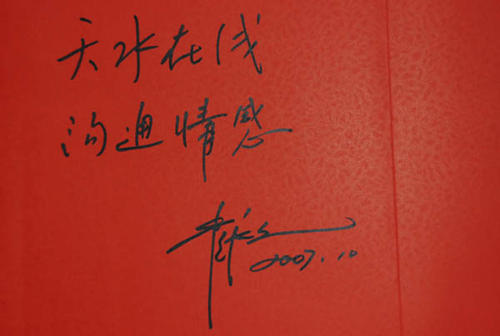 天水在线
沟通情感
2007.10